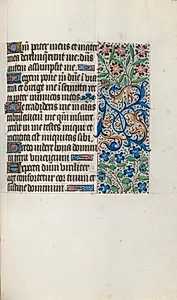 Qm pater meus et mater
mea derelinquerunt me: dns
autem assumpsit me.
Legem pone m dne i via
tua et dirige me i semita rc
ta pter inimicos meos
Ne tradideris me in aias
tribulantium me qm insurre
xerunt in me testes iniqui et
mentita est iniquitas sibi.
Credo videre bona domini
in terra viventium
Expecta dnm viriliter
age confortetur cor tuum et
sustine dominum.